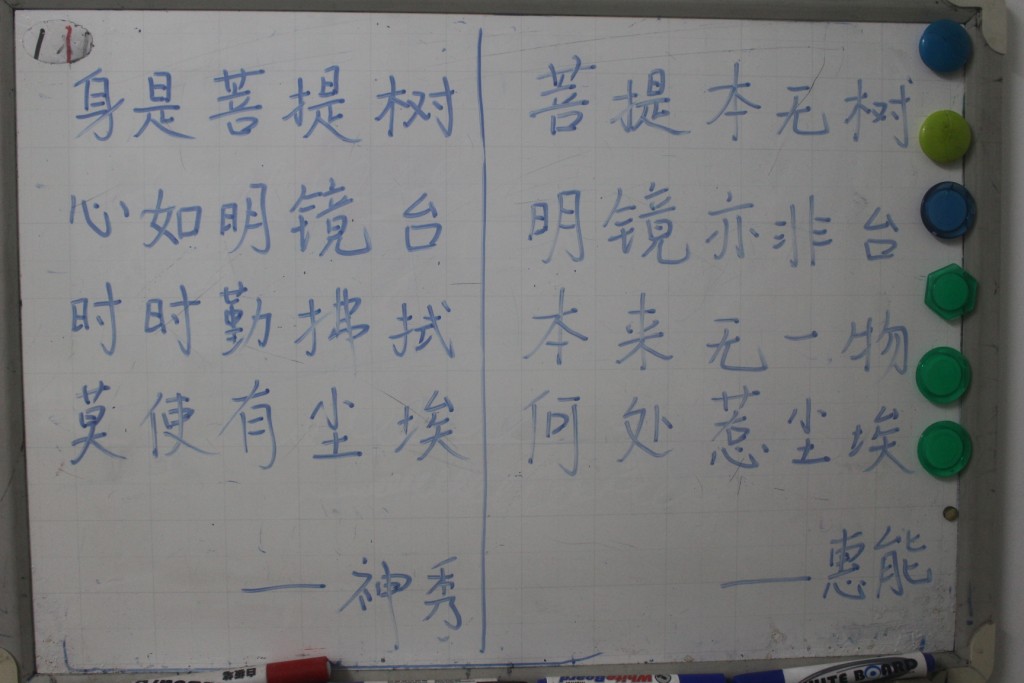 身是菩提树
心如明镜台
时时勤拂拭
莫使有尘埃
——神秀
菩提本无树
明镜亦非台
本来无一物
何处惹尘埃
——惠能
WhiteBoard
WHITE BOARD